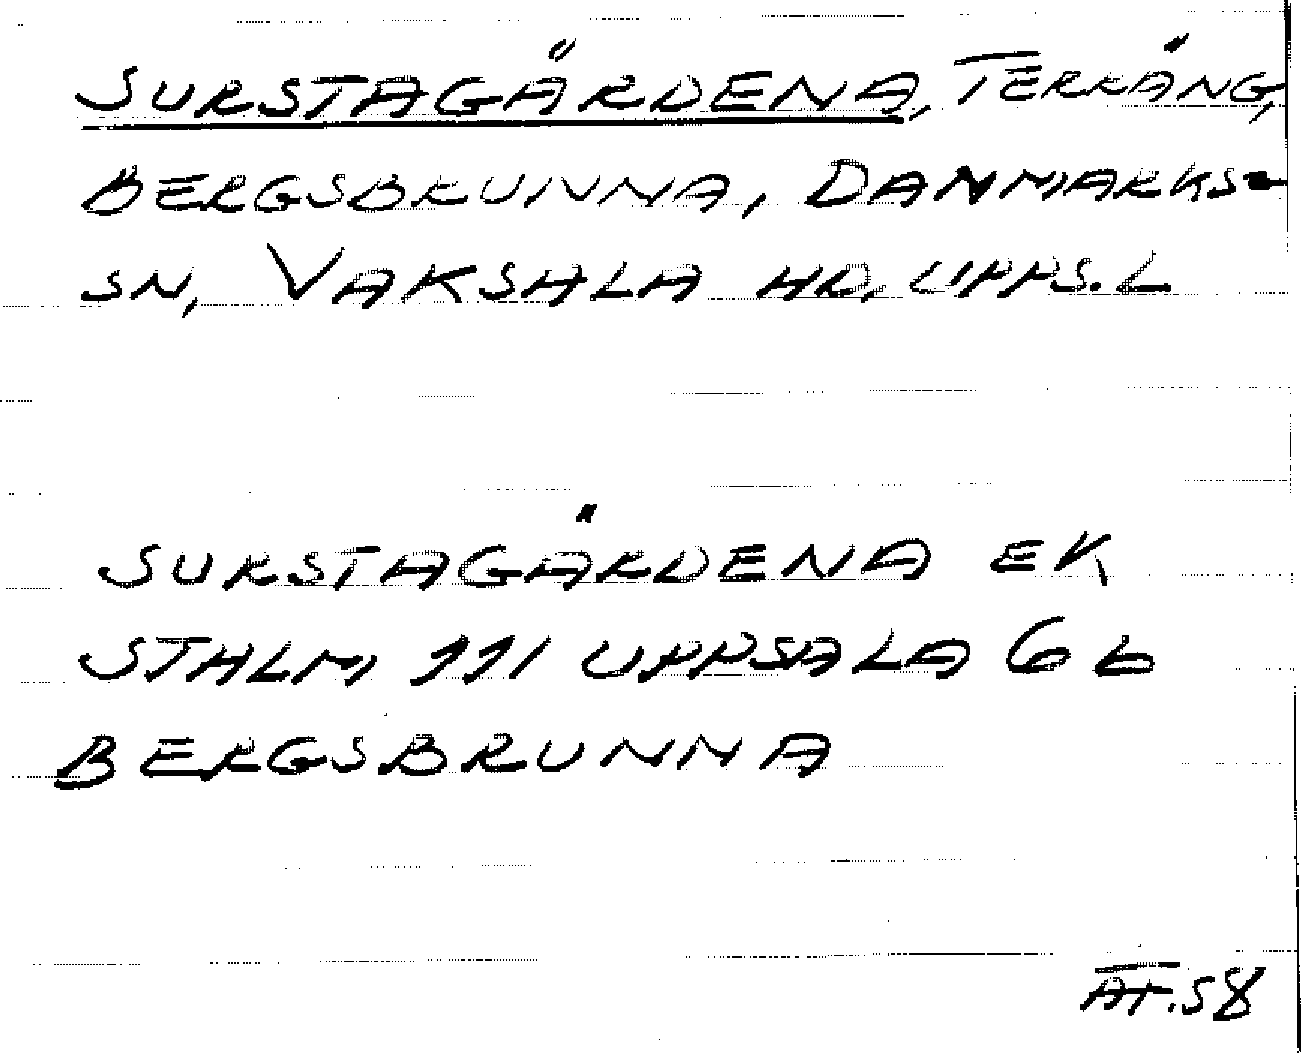 SURSTAGÄRDENA, TERRÄNG,
BERGSBRUNNA, DANMARKS-
SN, VAKSALA HD, UPPS. L
SURSTAGÄRDENA EK
STHLM 111 UPPSALA 6 b
BERGSBRUNNA
AT.58